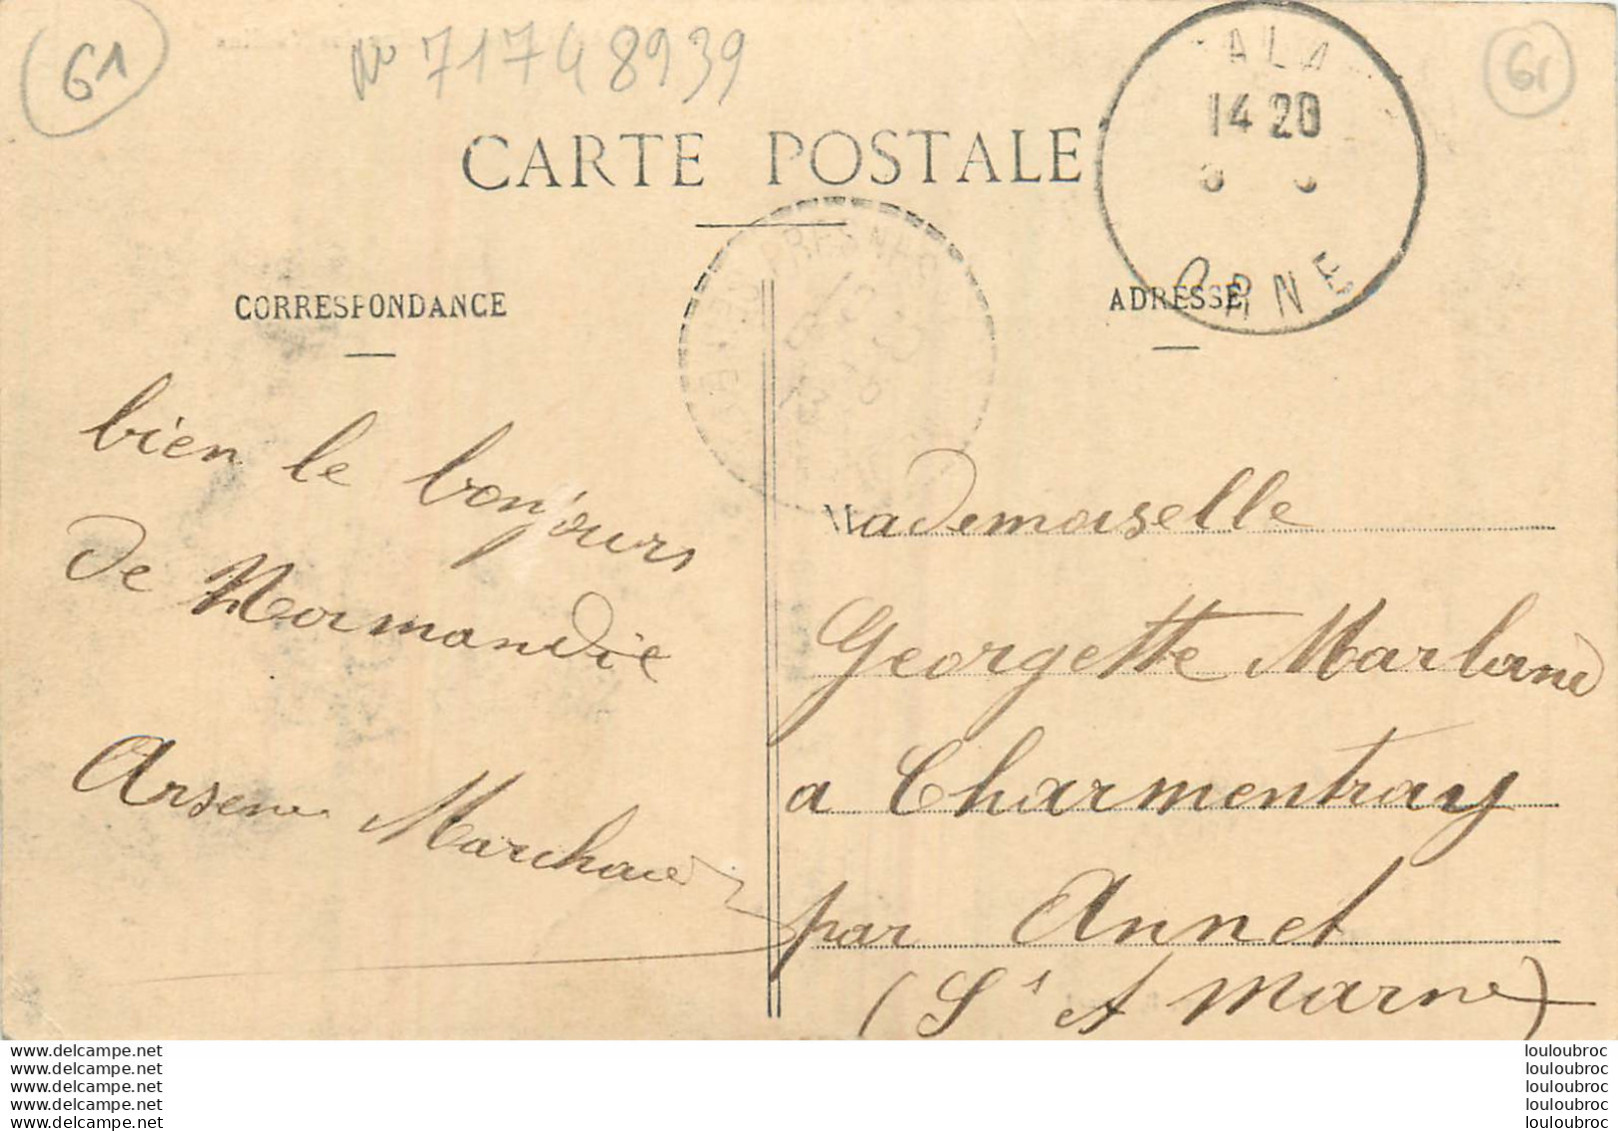 61
N° 71748939
61
ALA
14 20
ORNE
CARTE POSTALE
CORRESPONDANCE
ADRESSE
bien le bonjours
de Normandie
Arsene Marchand
Mademoiselle
Georgette Marland
a Charmentray
par Annet
(S et Marne)
www.delcampe.net
www.delcampe.net
www.delcampe.net
www.delcampe.net
www.delcampe.net
louloubroc
louloubroc
louloubroc
louloubroc
louloubroc